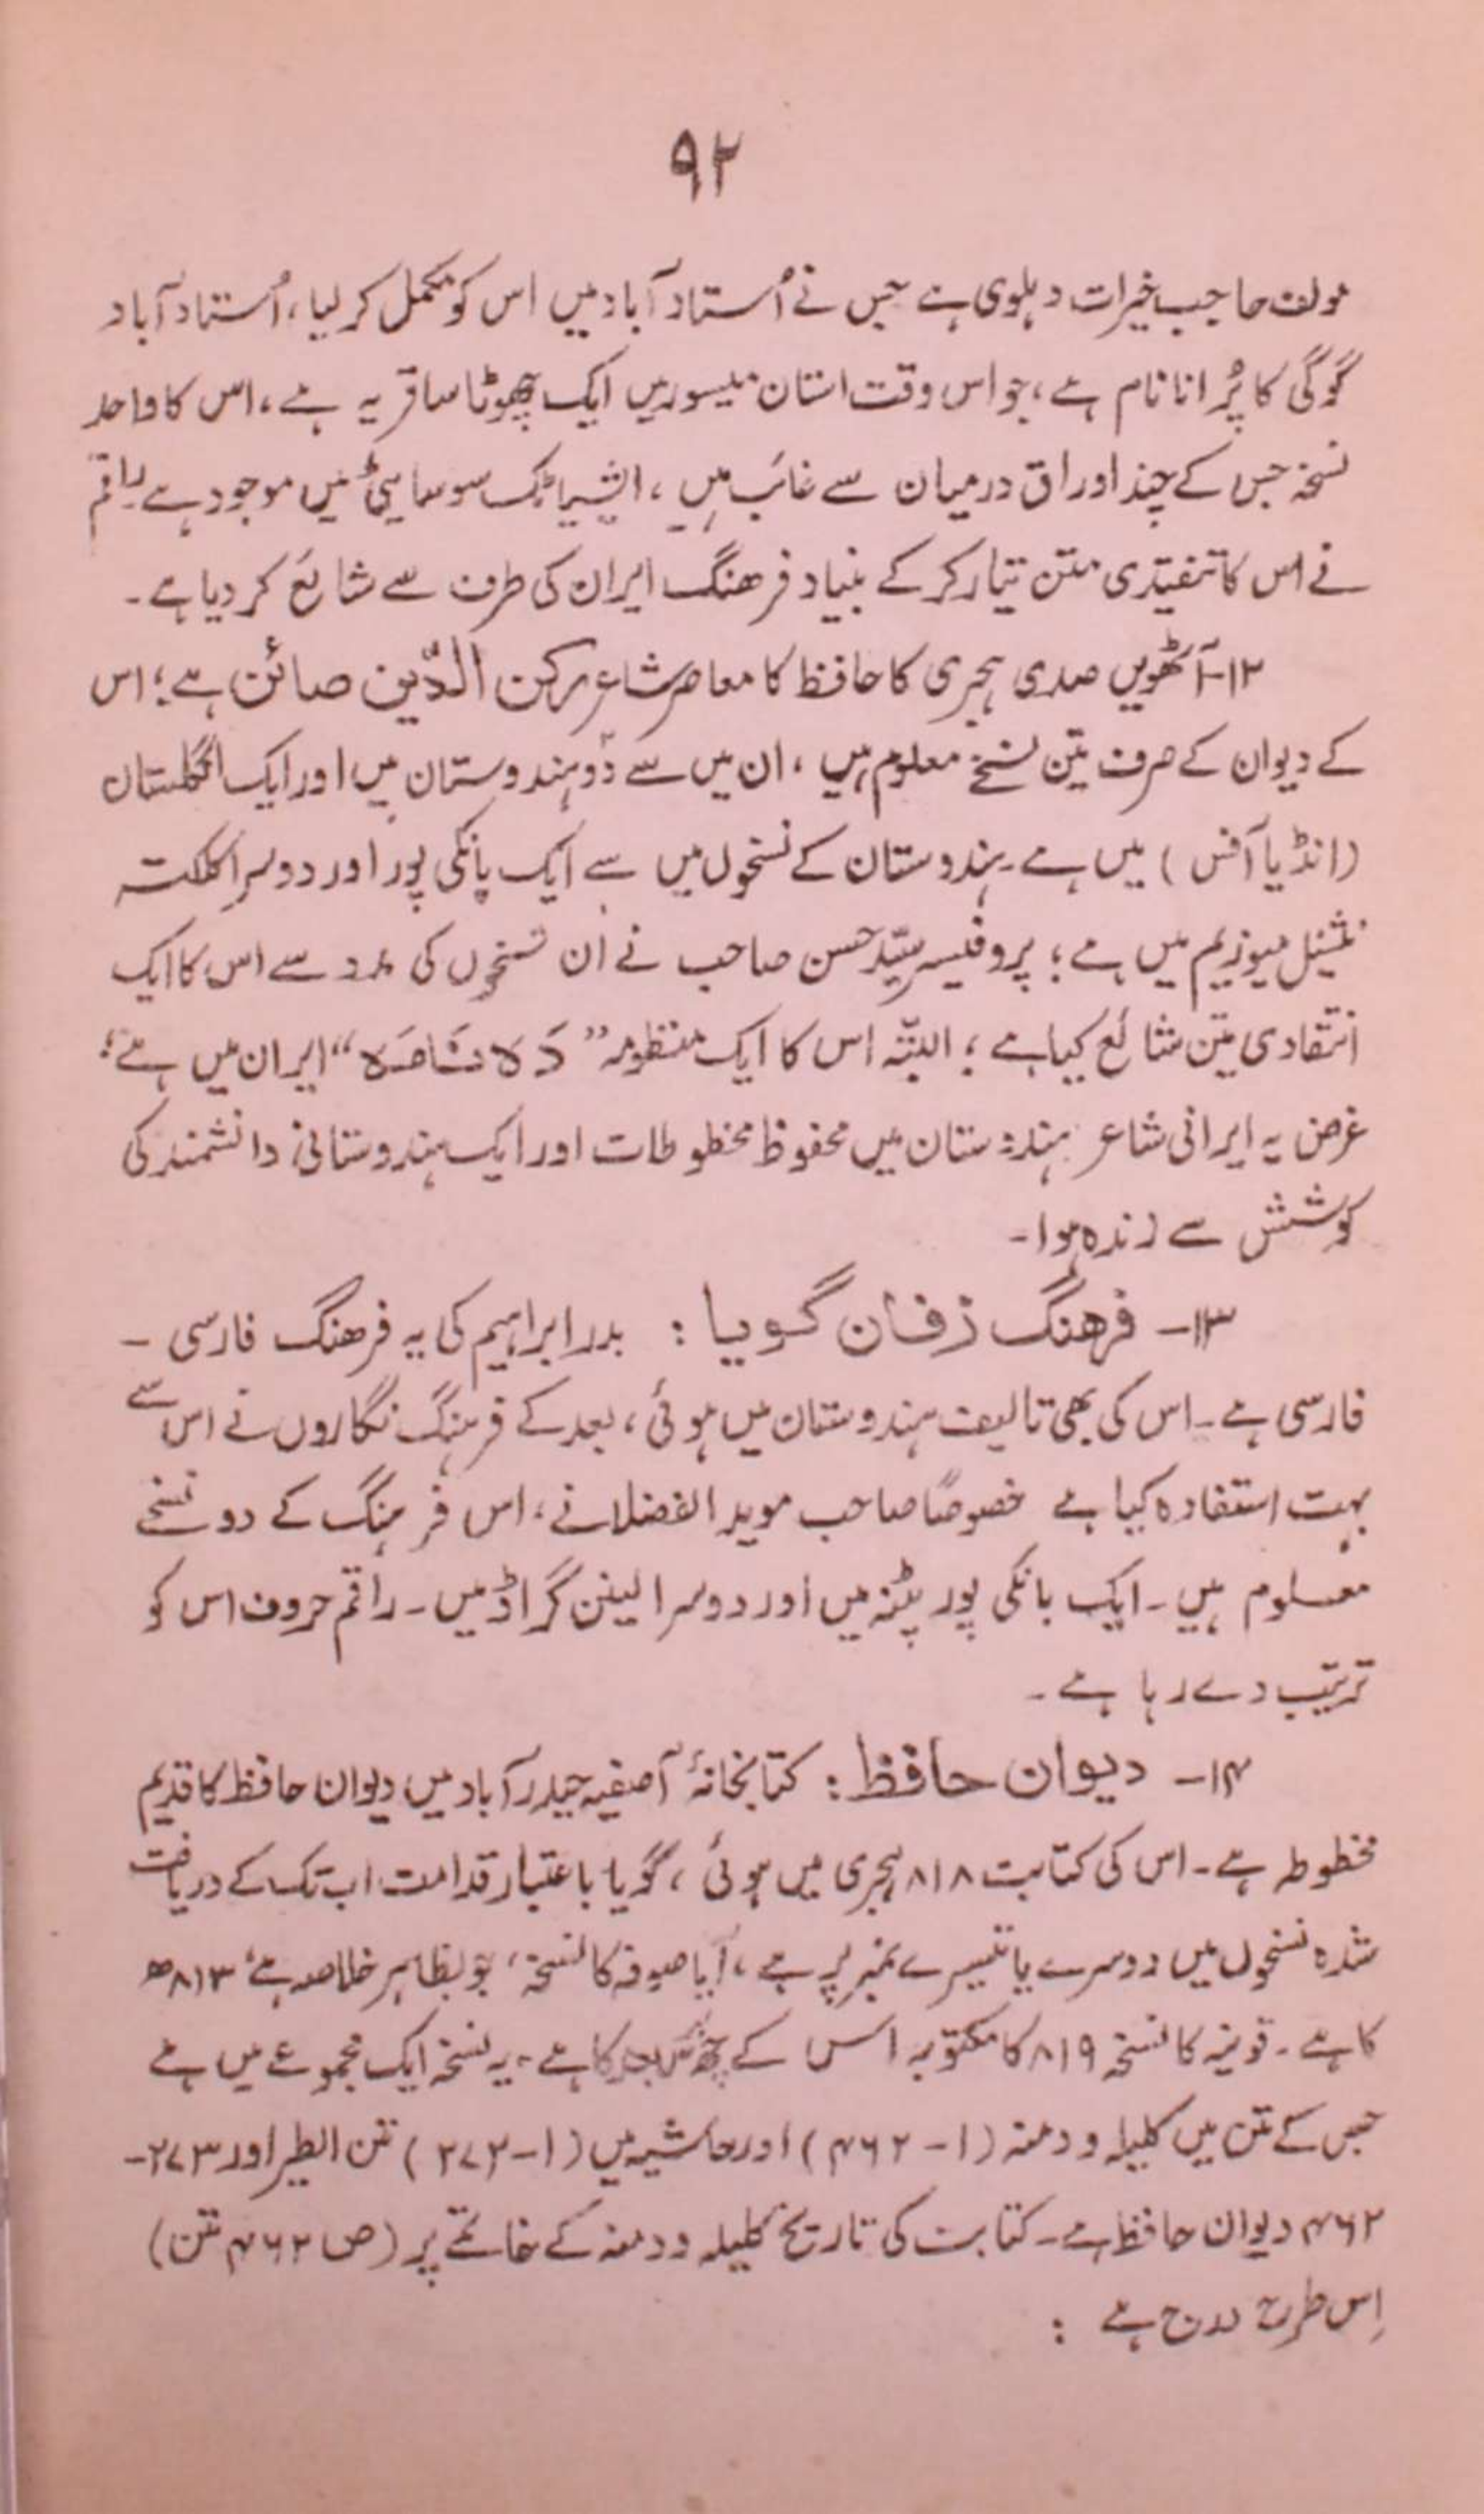 ۹۲
مولف حاجب خیرات دہلوی ہے جس نے اُستاد آباد میں اس کو مکمل کر لیا، اُستاد آباد
گوگی کا پُرانا نام ہے، جو اس وقت استان میسور میں ایک چھوٹا سا قریہ ہے، اس کا واحد
نسخہ جس کے چند اوراق درمیان سے غائب ہیں، ایشیاٹک سوسایٹی میں موجود ہے۔ راقم
نے اس کا تنقیدی متن تیار کر کے بنیاد فرھنگ ایران کی طرف سے شائع کر دیا ہے۔
۱۲۔ آٹھویں صدی ہجری کا حافظ کا معاصر شاعر رکن الدّین صائن ہے؛ اس
کے دیوان کے صرف تین نسخے معلوم ہیں، ان میں سے دو ہندوستان میں اور ایک انگلستان
(انڈیا آفس) میں ہے۔ ہندوستان کے نسخوں میں سے ایک بانکی پور اور دوسرا کلکتہ
نیشنل میوزیم میں ہے؛ پروفیسر سیّد حسن صاحب نے ان نسخوں کی مدد سے اس کا ایک
انتقادی متن شائع کیا ہے؛ البتّہ اس کا ایک منظومہ ”دَہ نَامَہ“ ایران میں ہے؛
غرض یہ ایرانی شاعر ہندوستان میں محفوظ مخطوطات اور ایک ہندوستانی دانشمند کی
کوشش سے زندہ ہوا۔
۱۳۔ فرھنگ زفان گویا : بدر ابراہیم کی یہ فرھنگ فارسی –
فارسی ہے۔ اس کی بھی تالیف ہندوستان میں ہوئی، بعد کے فرہنگ نگاروں نے اس سے
بہت استفادہ کیا ہے خصوصاً صاحب موید الفضلا نے، اس فرہنگ کے دو نسخے
معلوم ہیں۔ ایک بانکی پور پٹنہ میں اور دوسرا لینن گراڈ میں۔ راقم حروف اس کو
ترتیب دے رہا ہے۔
۱۴۔ دیوان حافظ : کتابخانۂ آصفیہ حیدر آباد میں دیوان حافظ کا قدیم
مخطوطہ ہے۔ اس کی کتابت ۸۱۸ ہجری میں ہوئی، گویا باعتبار قدامت اب تک کے دریافت
شدہ نسخوں میں دوسرے یا تیسرے نمبر پر ہے، آیا صوفہ کا نسخہ، جو بظاہر خلاصہ ہے، ۸۱۳ھ
کا ہے۔ قونیہ کا نسخہ ۸۱۹ کا مکتوبہ اس کے کا ہے۔ یہ نسخہ ایک مجموعے میں ہے
جس کے متن میں کلیلہ و دمنہ (۱-۴۶۲) اور حاشیہ میں (۱-۲۷۲) متن الطیر اور ۲۷۳-
۴۶۲ دیوان حافظ ہے۔ کتابت کی تاریخ کلیلہ و دمنہ کے خاتمے پر (ص ۴۶۲ متن)
اِس طرح درج ہے :